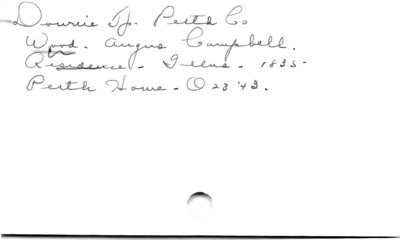 Downie Tp. Perth Co
Wood. Angus Campbell.
Residence - - 1835-
Perth Home - O 23 '43.